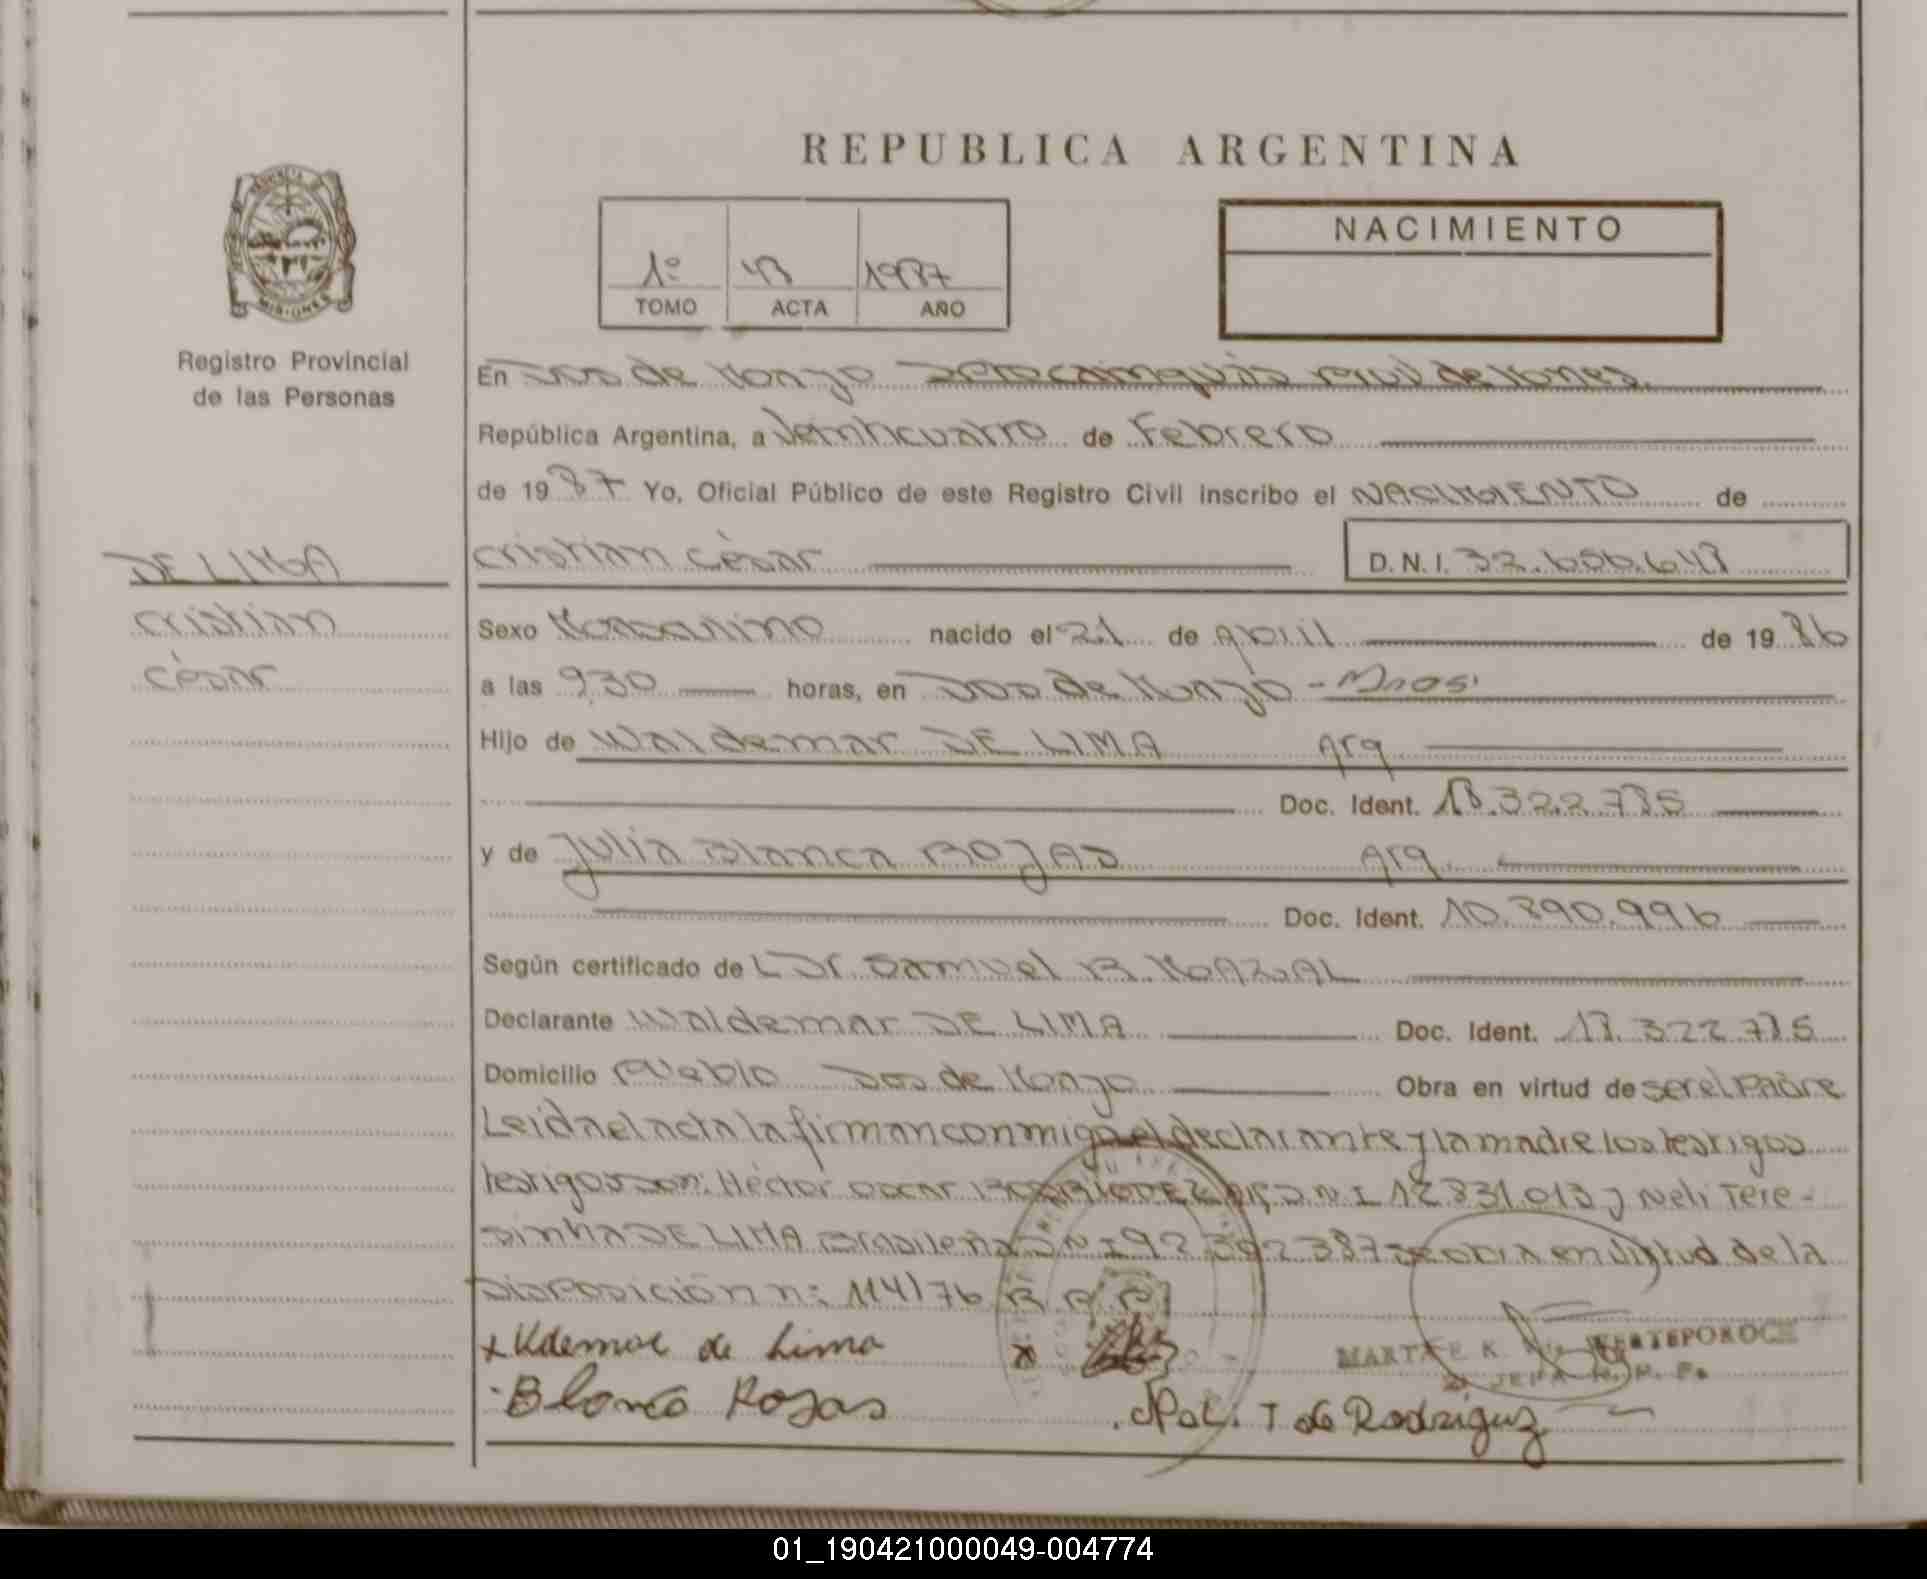 REPUBLICA ARGENTINA
NACIMIENTO
1º 1987
TOMO ACTA AÑO
Registro Provincial
de las Personas
En Dos de Mayo
República Argentina, a Veinticuatro de Febrero
de 1987 Yo, Oficial Público de este Registro Civil inscribo el NACIMIENTO de
DE LIMA
Cristian César D.N.I. 32.656.648
Cristian
César
Sexo Masculino nacido el 21 de Abril de 1986
a las 9,30 horas, en Dos de Mayo - Mnes.
Hijo de Waldemar DE LIMA Arg
Doc. Ident. 18.322.785
y de Julia Blanca ROJAS Arg.
Doc. Ident. 10.890.996
Según certificado del Dr. Samuel
Declarante Waldemar DE LIMA Doc. Ident. 18.322.785
Domicilio Pueblo Dos de Mayo Obra en virtud de ser el Padre
Leida el acta la firman conmigo el declarante y la madre los testigos
testigos son: Héctor Oscar D.N.I 12.831.013 y Neli Tere-
sinha DE LIMA Brasileña D.N.I 92.392.387 se obra en virtud de la
Disposición n: 114/76 R.P.P.
x Vldemar de Lima
MARTA E. K.
JEFA R. P. P.
Blanca Rojas
T de Rodriguez
01_190421000049-004774